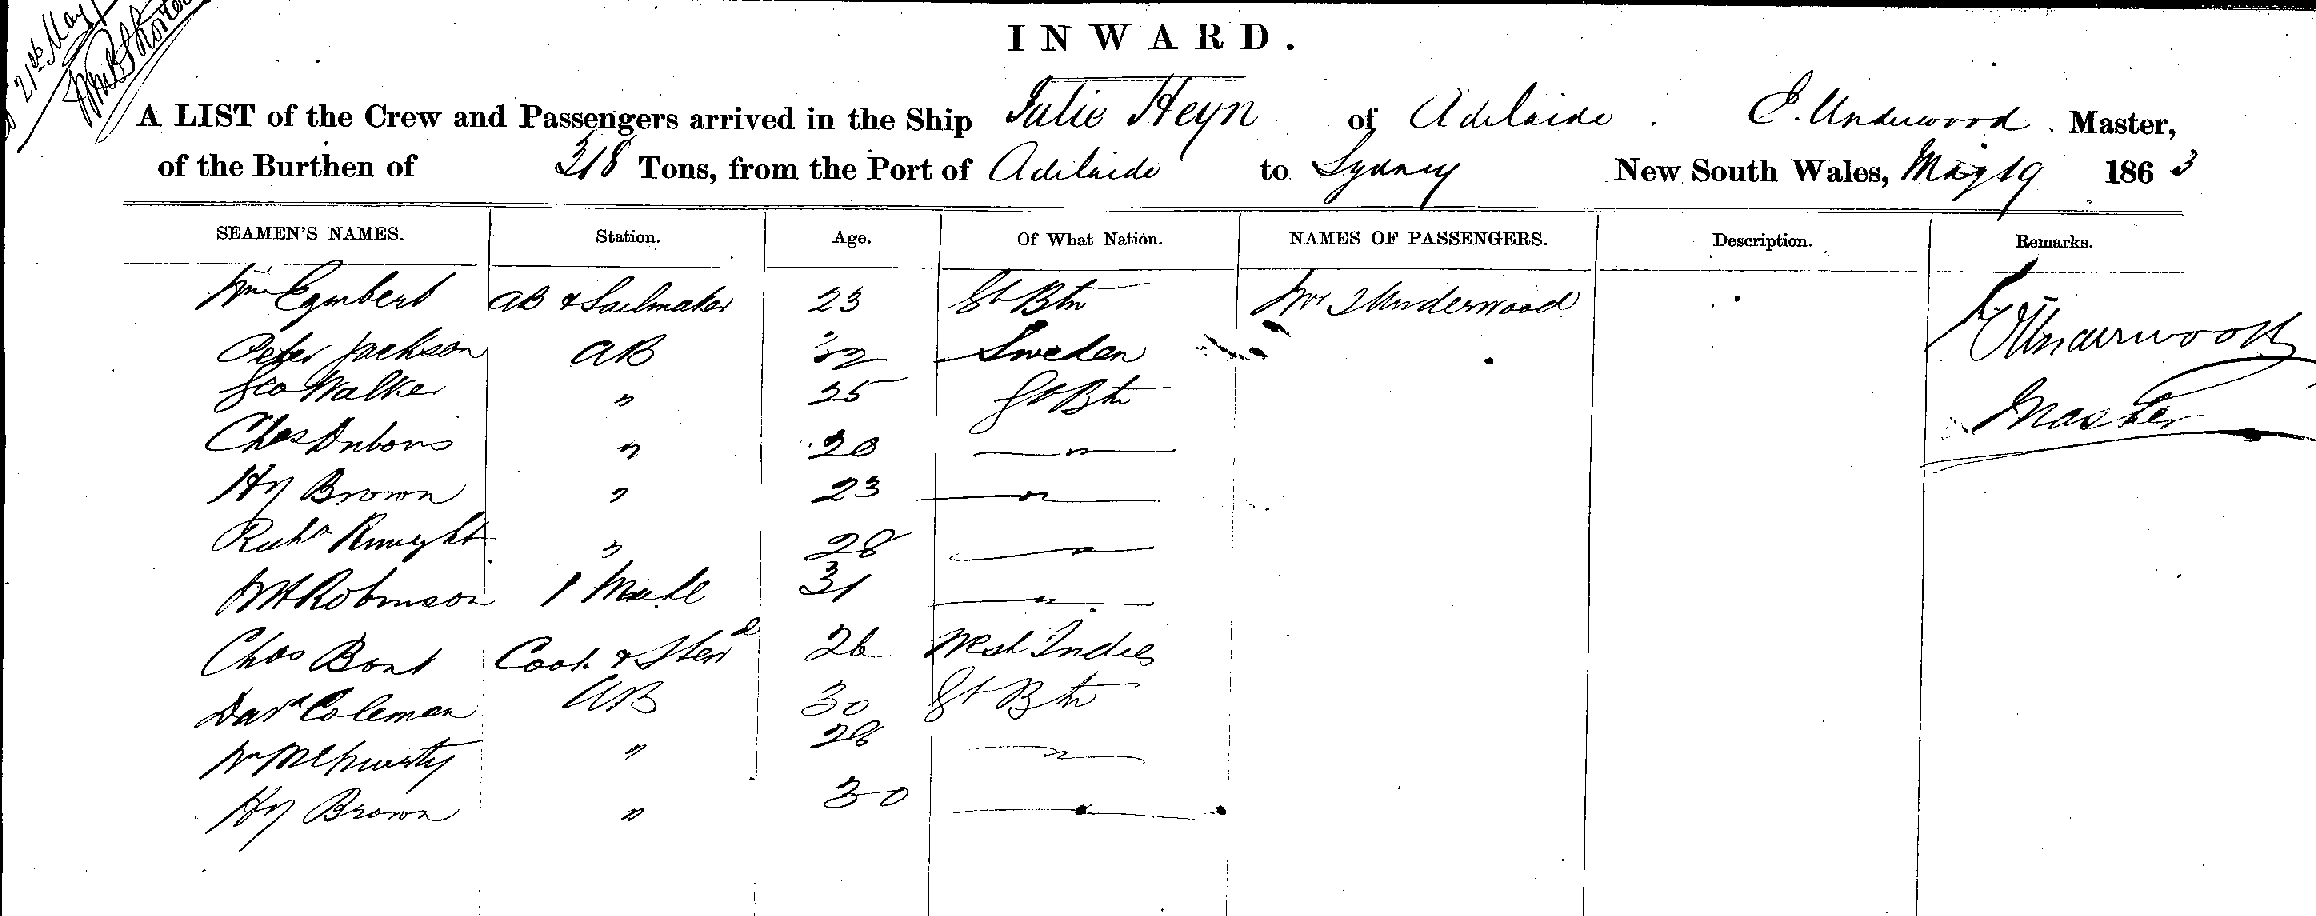 21st May
INWARD.
A LIST of the Crew and Passengers arrived in the Ship Julie Heyn of Adelaide. E. Underwood. Master,
of the Burthen of 318 Tons, from the Port of Adelaide to Sydney New South Wales, May 19 1863
SEAMEN'S NAMES. Station. Age. Of What Nation. NAMES OF PASSENGERS. Description. Remarks.
Wm Egurbert AB & Sailmaker 23 Gt Btn Mr J Underwood
E Underwood
Peter Jackson AB 32 Sweden
Geo Walker " 25 Gt Btn
Master
Chas Dubois " 20 — " —
Hy Brown " 23 — " —
Richd " 28 — " —
WH Robinson 1 Mate 31 — " —
Chas Bont Cook & Stewd 26 West Indies
Davd Coleman AB 30 Gt Btn
Wm " 28 — " —
Hy Brown " 30 — " —